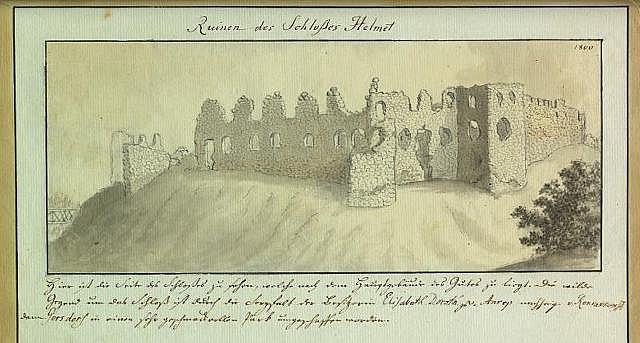 Ruinen des Schloßes Helmet
1800
Hier ist die Seite des Schloßes zu sehen, welche nach dem Hauptgebäude des Gutes zu liegt. Die wilde
Gegend um das Schloß ist durch die Sorgfalt der Besitzerin Elisabeth Dorothea, v. Anrep
dann Gersdorf in einen sehr geschmackvollen Park umgeschaffen worden.